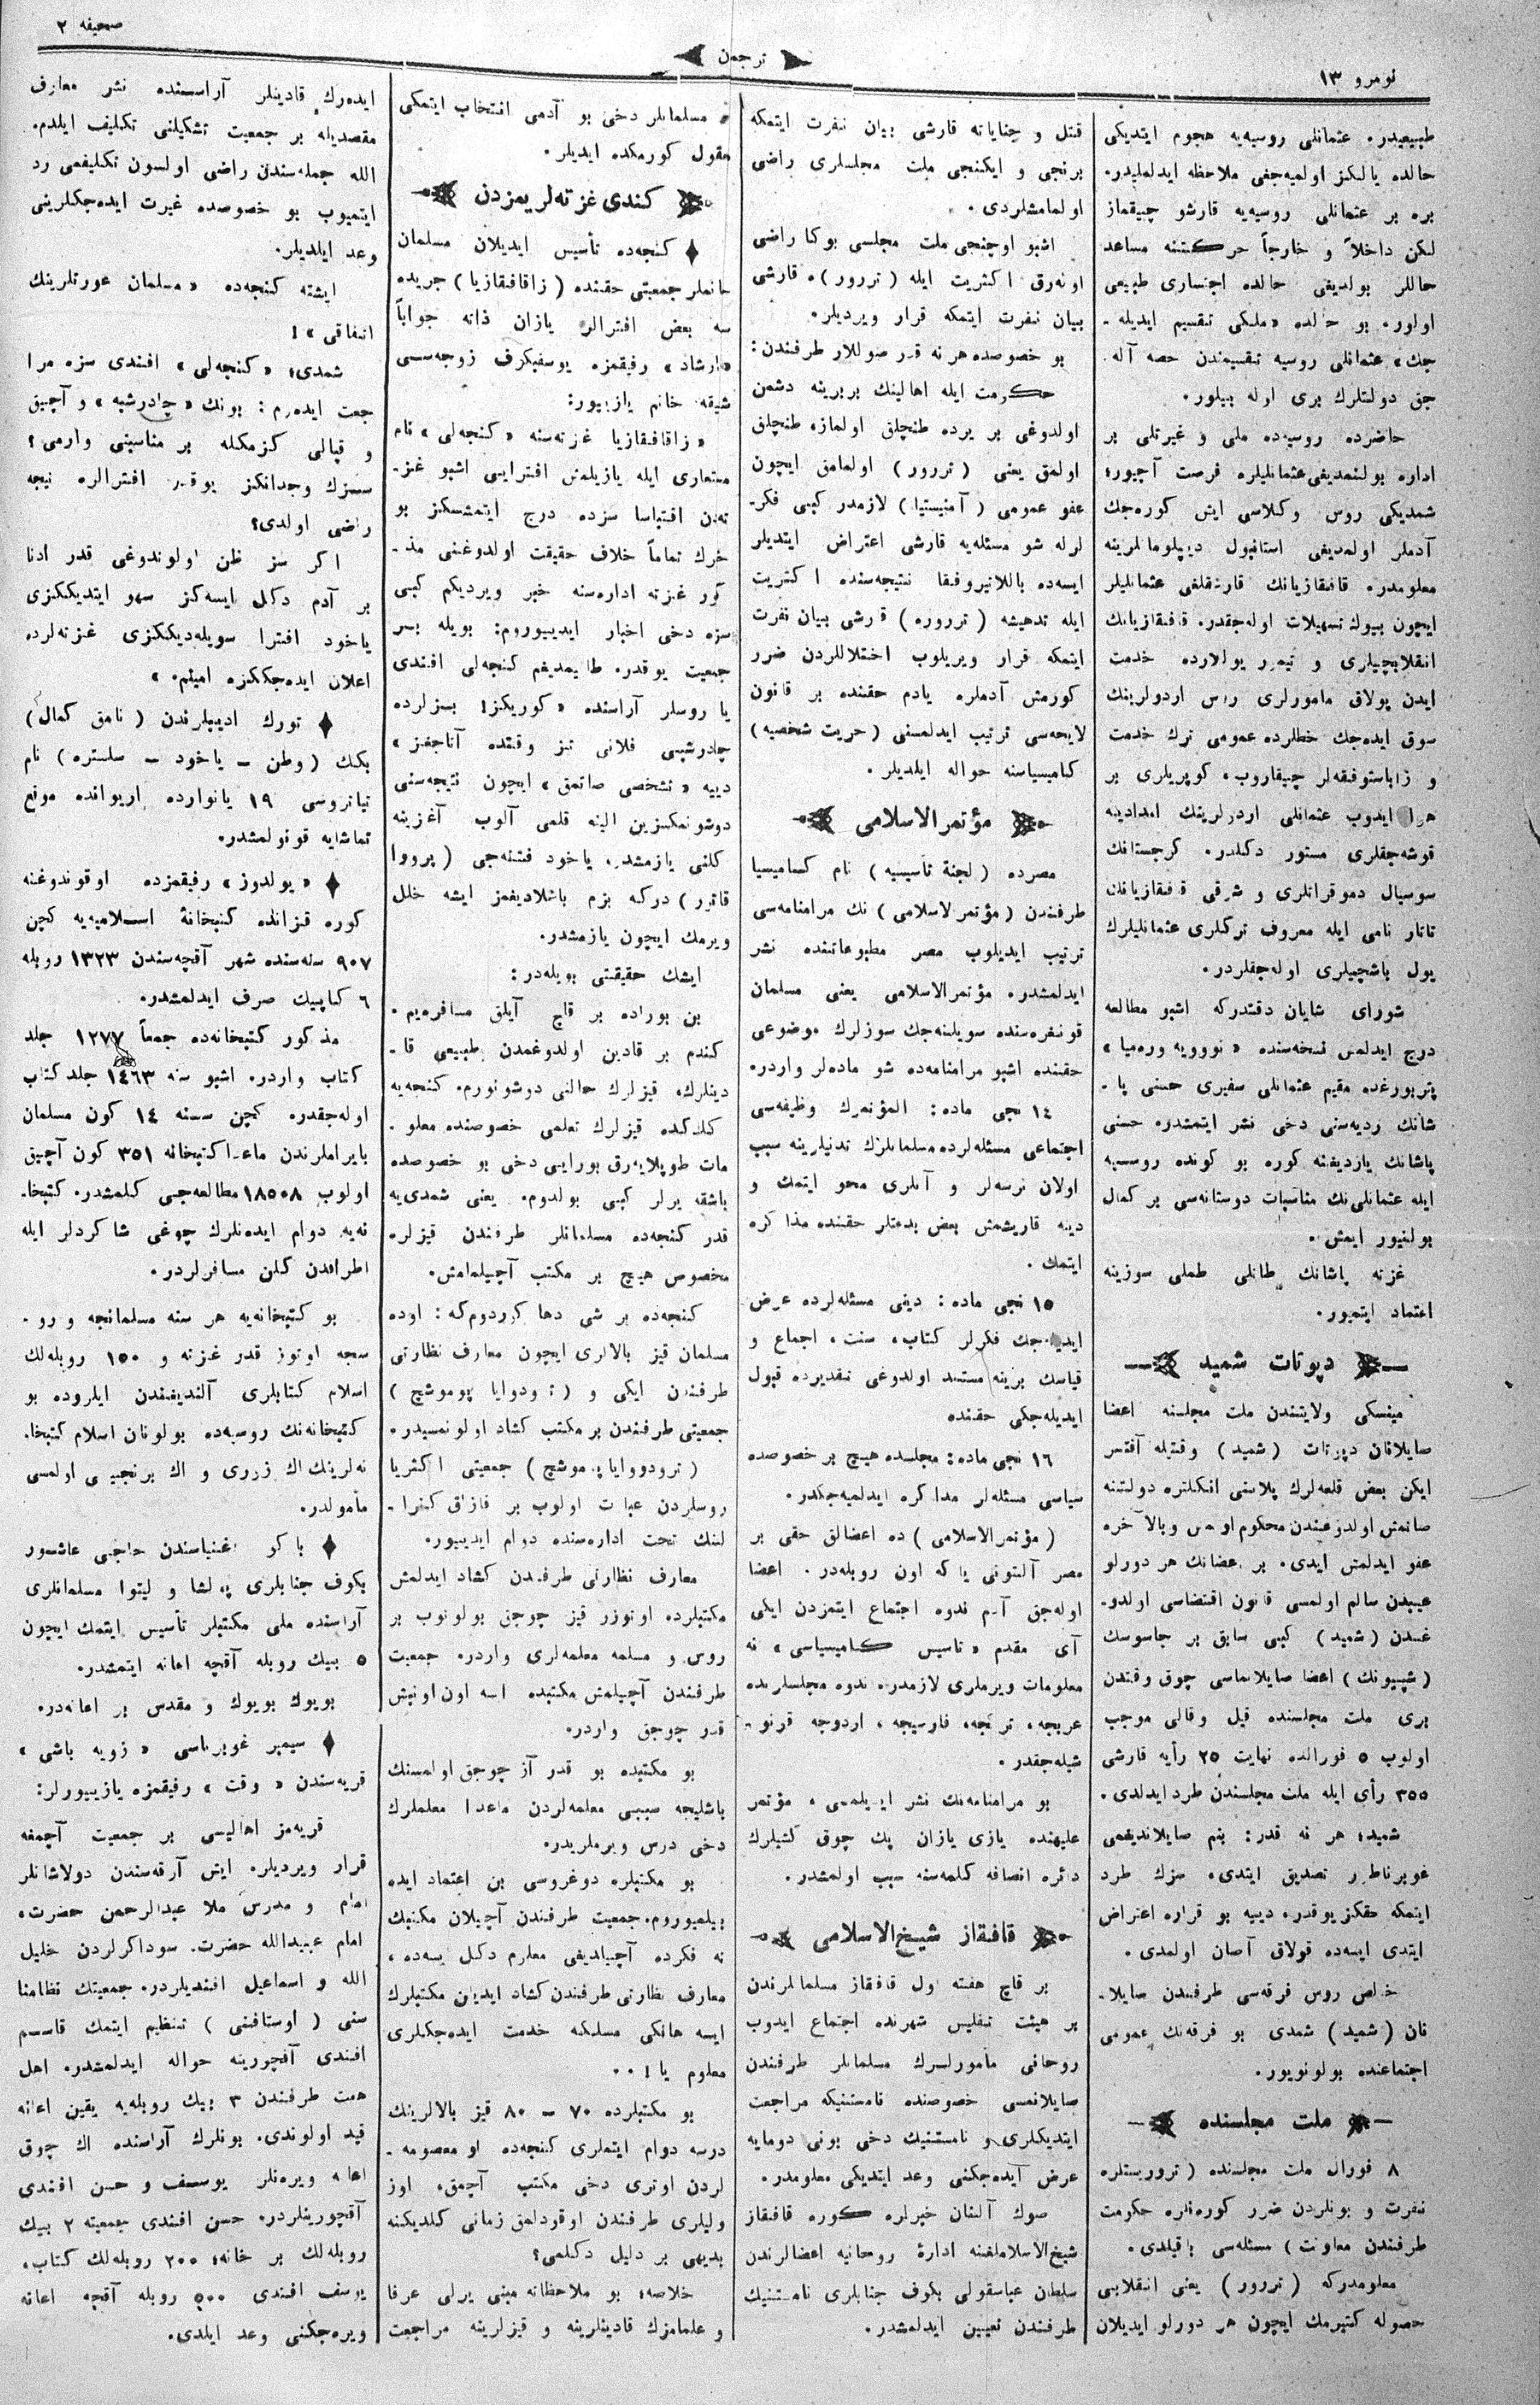 نومرو ١٣
ترجمان
صحيفه ٢
طبيعيدر. عثمانلى روسيه‌يه هجوم ايتديكى
حالده يالكز اولميه‌جغى ملاحظه ايدلمليدر.
بره بر عثمانلى روسيه‌يه قارشو چيقماز
لكن داخلاً و خارجاً حركتنه مساعد
حاللر بولديغى حالده اجتسارى طبيعى
اولور. بو حالده «ملكى تقسيم ايديله ـ
جك» عثمانلى روسيه تقسيمندن حصه آله
جق دولتلرك برى اوله بيلور.
حاضرده روسيه‌ده ملى و غيرتلى بر
اداره بولنمديغى عثمانليلره فرصت آچيور؛
شمديكى روس وكلاسى ايش كوره‌جك
آدملر اولمديغى استانبول ديپلوماتلرينه
معلومدر. قافقازيانك قارشقلغى عثمانليلر
ايچون بيوك تسهيلات اوله‌جقدر. قافقازيانك
انقلابچيلرى و تيمر يوللارده خدمت
ايدن پولاق مامورلرى روس اردولرينك
سوق ايده‌جك خطلرده عمومى ترك خدمت
و زاباستوفقه‌لر چيقاروب، كوپريلرى بر
هوا ايدوب عثمانلى اردولرينك امدادينه
قوشه‌جقلرى مستور دكلدر. كرجستانك
سوسيال دموقراتلرى و شرقى قافقازيانك
تاتار نامى ايله معروف تركلرى عثمانليلرك
يول باشچيلرى اوله‌جقلردر.
شوراى شايان دقتدركه اشبو مطالعه
درج ايدلمش نسخه‌سنده «نوويه وره‌ميا»
پتربورغده مقيم عثمانلى سفيرى حسنى پا ـ
شانك رديه‌سنى دخى نشر ايتمشدر. حسنى
پاشانك يازديغنه كوره بو كونده روسيه
ايله عثمانلى‌نك مناسبات دوستانه‌سى بر كمال
بولنيور ايمش.
غزته پاشانك طاتلى طملى سوزينه
اعتماد ايتميور.
دپوتات شميد
مينسكى ولايتندن ملت مجلسنه اعضا
صايلانان دپوتات (شميد) وقتيله آفتسر
ايكن بعض قلعه‌لرك پلاننى انكلتره دولتنه
صاتمش اولدوغندن محكوم اولمش وبالاخره
عفو ايدلمش ايدى. بر اعضانك هر دورلو
عيبدن سالم اولمسى قانون اقتضاسى اولدو ـ
غندن (شميد) كبى سابق بر جاسوسك
(شپيونك) اعضا صايلانماسى چوق وقتدن
برى ملت مجلسنده قيل وقالى موجب
اولوب ٥ فورالده نهايت ٢٥ رأيه قارشى
٣٥٥ رأى ايله ملت مجلسندن طرد ايدلدى.
شميد؛ هر نه قدر: بنم صايلانديغمى
غوبرناطور تصديق ايتدى، سزك طرد
ايتمكه حقكز يوقدر، دييه بو قراره اعتراض
ايتدى ايسه‌ده قولاق آصان اولمدى.
خالص روس فرقه‌سى طرفندن صايلا ـ
نان (شميد) شمدى بو فرقه‌نك عمومى
اجتماعنده بولونويور.
ملت مجلسنده
٨ فورال ملت مجلسنده (تروريستلره
نفرت و بونلردن ضرر كورەنلره حكومت
طرفندن معاونت) مسئله‌سى باقيلدى.
معلومدركه (تررور) يعنى انقلابى
حصوله كتيرمك ايچون هر دورلو ايديلان
قتل و جناياته قارشى بيان نفرت ايتمكه
برنجى و ايكنجى ملت مجلسلرى راضى
اولمامشلردى.
اشبو اوچنجى ملت مجلسى بوكا راضى
اوله‌رق اكثريت ايله (تررور)ه قارشى
بيان نفرت ايتمكه قرار ويرديلر.
بو خصوصده هر نه قدر صوللار طرفندن:
حكومت ايله اهالينك بربرينه دشمن
اولدوغى بر يرده طنچلق اولماز، طنچلق
اولمق يعنى (تررور) اولمامق ايچون
عفو عمومى (آمنيستيا) لازمدر كبى فكر ـ
لرله شو مسئله‌يه قارشى اعتراض ايتديلر
ايسه‌ده باللاتيروفقا نتيجه‌سنده اكثريت
ايله تدهيشه (تروره) قارشى بيان نفرت
ايتمكه قرار ويريلوب اختلاللردن ضرر
كورمش آدملره يادم حقنده بر قانون
لايحه‌سى ترتيب ايدلمسنى (حريت شخصيه)
كاميسياسنه حواله ايلديلر.
مؤتمر الاسلامى
مصرده (لجنة تأسيسيه) نام كاميسيا
طرفندن (مؤتمر الاسلامى) نك مرامنامه‌سى
ترتيب ايديلوب مصر مطبوعاتنده نشر
ايدلمشدر. مؤتمر الاسلامى يعنى مسلمان
قونفره‌سنده سويلنه‌جك سوزلرك موضوعى
حقنده اشبو مرامنامه‌ده شو ماده‌لر واردر.
١٤ نجى ماده: المؤتمرك وظيفه‌سى
اجتماعى مسئله‌لرده مسلمانلرك تدنيلرينه سبب
اولان نرسه‌لر و آنلرى محو ايتمك و
دينه قاريشمش بعض بدعتلر حقنده مذاكره
ايتمك.
١٥ نجى ماده: دينى مسئله‌لرده عرض
ايديله‌جك فكرلر كتاب، سنت، اجماع و
قياسك برينه مستند اولدوغى تقديرده قبول
ايديله‌جكى حقنده
١٦ نجى ماده: مجلسده هيچ بر خصوصده
سياسى مسئله‌لر مذاكره ايدلميه‌جكدر.
(مؤتمر الاسلامى) ده اعضالق حقى بر
مصر آلتونى ياكه اون روبله‌در. اعضا
اوله‌جق آدم ندوه اجتماع ايتمزدن ايكى
آى مقدم «تأسيس كاميسياسى» نه
معلومات ويرملرى لازمدر. ندوه مجلسلرنده
عربجه، تركجه، فارسيجه، اردوجه قونو ـ
شيله‌جقدر.
بو مرامنامه‌نك نشر ايديلمسى، مؤتمر
عليهنده يازى يازان پك چوق كشيلرك
دائره انصافه كلمه‌سنه سبب اولمشدر.
قافقاز شيخ‌الاسلامى
بر قاچ هفته اول قافقاز مسلمانلرندن
بر هيئت تفليس شهرنده اجتماع ايدوب
روحانى مأمورلرك مسلمانلر طرفندن
صايلانمسى خصوصنده نامستنيكه مراجعت
ايتديكلرى و نامستنيك دخى بونى دومايه
عرض ايده‌جكنى وعد ايتديكى معلومدر.
صوك آلنان خبرلره كوره قافقاز
شيخ‌الاسلاملغنه ادارۀ روحانيه اعضالرندن
سلطان عباسقولى بكوف جنابلرى نامستنيك
طرفندن تعيين ايدلمشدر.
مسلمانلر دخى بو آدمى انتخاب ايتمكى
معقول كورمكده ايديلر.
كندى غزته‌لريمزدن
كنجه‌ده تأسيس ايديلان مسلمان
خانملر جمعيتى حقنده (زاقافقازيا) جريده
سه بعض افترالر يازان ذاته جواباً
«ارشاد» رفيقمزه يوسفبكوف زوجه‌سى
شيقه خانم يازييور:
«زاقافقازيا غزته‌سنه «كنجه‌لى» نام
مستعارى ايله يازيلمش افترايى اشبو غز ـ
ته‌دن اقتباسا سزده درج ايتمشسكز بو
خبرك تماماً خلاف حقيقت اولدوغنى مذ ـ
كور غزته اداره‌سنه خبر ويرديكم كبى
سزه دخى اخبار ايدييوروم: بويله بر
جمعيت يوقدر. طانيمديغم كنجه‌لى افندى
يا روسلر آراسنده «كوريكز! بزلرده
چادرشبى فلانى تيز وقتده آتاجغز»
دييه «تشخصى صاتمق» ايچون نتيجه‌سنى
دوشونمكسزين الينه قلمى آلوب آغزينه
كلنى يازمشدر، ياخود فتنه‌جى (پرووا
قاتور) دركه بزم باشلاديغمز ايشه خلل
ويرمك ايچون يازمشدر.
ايشك حقيقتى بويله‌در:
بن بوراده بر قاچ آيلق مسافره‌يم.
كندم بر قادين اولدوغمدن طبيعى قا ـ
دينلرك، قيزلرك حالنى دوشونورم. كنجه‌يه
كلدكده قيزلرك تعلمى خصوصنده معلو ـ
مات طوپلايه‌رق بورايى دخى بو خصوصده
باشقه يرلر كبى بولدوم. يعنى شمدى‌يه
قدر كنجه‌ده مسلمانلر طرفندن قيزلره
مخصوص هيچ بر مكتب آچيلمامش.
كنجه‌ده بر شى دها كوردوم‌كه: اوده
مسلمان قيز بالالرى ايچون معارف نظارتى
طرفندن ايكى و (ترودوايا پوموشچ)
جمعيتى طرفندن بر مكتب كشاد اولونمسيدر.
(ترودووايا پوموشچ) جمعيتى اكثريا
روسلردن عبارت اولوب بر قازاق كنرا ـ
لنك تحت اداره‌سنده دوام ايدييور.
معارف نظارتى طرفندن كشاد ايدلمش
مكتبلرده اوتوزر قيز چوجق بولونوب بر
روس و مسلمه معلمه‌لرى واردر. جمعيت
طرفندن آچيلمش مكتبده ايسه اون اونبش
قدر چوجق واردر.
بو مكتبده بو قدر آز چوجق اولمسنك
باشليجه سببى معلمه‌لردن ماعدا معلملرك
دخى درس ويرملريدر.
بو مكتبلره دوغروسى بن اعتماد ايده
بيلميوروم. جمعيت طرفندن آچيلان مكتبك
نه فكرده آچيلديغى معلوم دكل ايسه‌ده،
معارف نظارتى طرفندن كشاد ايديلن مكتبلرك
ايسه هانكى مسلكه خدمت ايده‌جكلرى
معلوم يا!..
بو مكتبلرده ٧٠ ـ ٨٠ قيز بالالرينك
درسه دوام ايتملرى كنجه‌ده او معصومه ـ
لردن اوترى دخى مكتب آچمق، اوز
وليلرى طرفندن اوقودلمق زمانى كلديكنه
بديهى بر دليل دكلمى؟
خلاصه؛ بو ملاحظاته مبنى يرلى عرفا
و علمامزك قادينلرينه و قيزلرينه مراجعت
ايده‌رك قادينلر آراسنده نشر معارف
مقصديله بر جمعيت تشكيلنى تكليف ايلدم.
الله جمله‌سندن راضى اولسون تكليفمى رد
ايتميوب بو خصوصده غيرت ايده‌جكلرينى
وعد ايلديلر.
ايشته كنجه‌ده «مسلمان عورتلرينك
اتفاقى»!
شمدى؛ «كنجه‌لى» افندى سزه مرا
جعت ايدەرم: بونك «چادرشبه» و آچيق
و قپالى كزمكله بر مناسبتى وارمى؟
سزك وجدانكز بوقدر افترالره نيجه
راضى اولدى؟
اكر سز ظن اولوندوغى قدر ادنا
بر آدم دكل ايسه‌كز سهو ايتديككزى
ياخود افترا سويله‌ديككزى غزته‌لرده
اعلان ايده‌جككزه امينم.»
تورك اديبلرندن (نامق كمال)
بكك (وطن ـ ياخود ـ سلستره) نام
تياتروسى ١٩ يانوارده اريوانده موقع
تماشايه قونولمشدر.
«يولدوز» رفيقمزده اوقوندوغنه
كوره قزانده كتبخانۀ اسلاميه‌يه كچن
٩٠٧ سنه‌سنده شهر آقچه‌سندن ١٣٢٣ روبله
٦ كاپيك صرف ايدلمشدر.
مذكور كتبخانه‌ده جمعاً ١٢٧٧ جلد
كتاب واردر. اشبو سنه ١٤٦٣ جلد كتاب
اوله‌جقدر. كچن سنه ١٤ كون مسلمان
بايراملرندن ماعدا كتبخانه ٣٥١ كون آچيق
اولوب ١٨٥٠٨ مطالعه‌جى كلمشدر. كتبخا ـ
نه‌يه دوام ايدەنلرك چوغى شاكردلر ايله
اطرافدن كلن مسافرلردر.
بو كتبخانه‌يه هر سنه مسلمانجه و رو ـ
سجه اوتوز قدر غزته و ١٥٠ روبله‌لك
اسلام كتابلرى آلنديغندن ايلروده بو
كتبخانه‌نك روسيه‌ده بولونان اسلام كتبخا ـ
نه‌لرينك اك زورى و اك برنجيسى اولمسى
مأمولدر.
باكو اغنياسندن حاجى عاشور
بكوف جنابلرى پولشا و ليتوا مسلمانلرى
آراسنده ملى مكتبلر تأسيس ايتمك ايچون
٥ بيك روبله آقچه اعانه ايتمشدر.
بويوك بويوك و مقدس بر اعانه‌در.
سيمبر غوبرناسى «زويه باشى»
قريه‌سندن «وقت» رفيقمزه يازييورلر:
قريه‌مز اهاليسى بر جمعيت آچمغه
قرار ويرديلر. ايش آرقه‌سندن دولاشانلر
امام و مدرس ملا عبدالرحمن حضرت،
امام عبيدالله حضرت. سوداكرلردن خليل
الله و اسماعيل افنديلردر. جمعيتك نظامنا
سنى (اوستافنى) تنظيم ايتمك قاسم
افندى آقچورينه حواله ايدلمشدر. اهل
همت طرفندن ٣ بيك روبله‌يه يقين اعانه
قيد اولوندى. بونلرك آراسنده اك چوق
اعانه ويرەنلر يوسف و حسن افندى
آقچورينلردر. حسن افندى جمعيته ٢ بيك
روبله‌لك بر خانه؛ ٢٠٠ روبله‌لك كتاب،
يوسف افندى ٥٠٠ روبله آقچه اعانه
ويره‌جكنى وعد ايلدى.